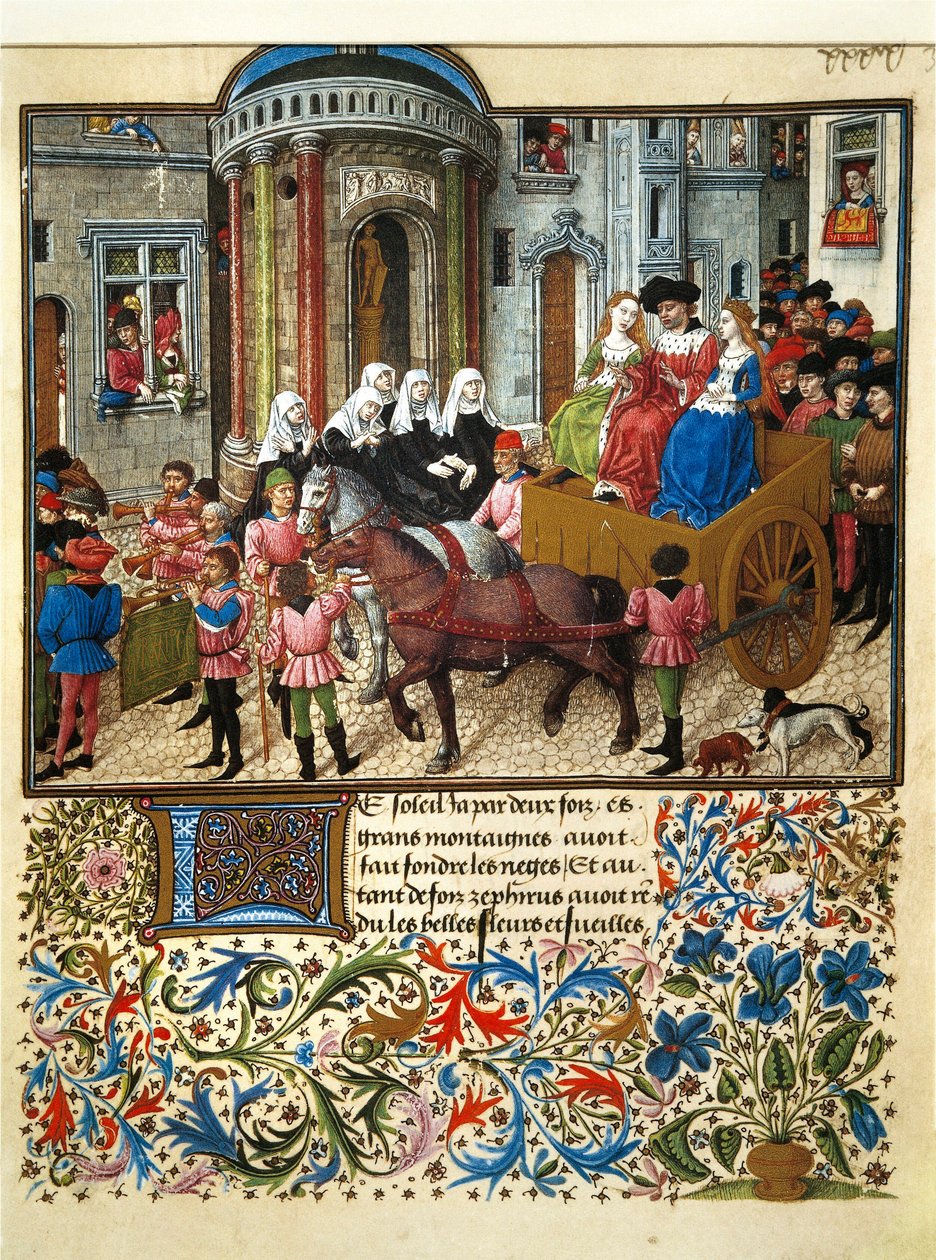 LE soleil Ja par deux foiz es
grans montaignes avoit
fait fondre les neges / Et au
tant de foiz zephirus avoit rē
du les belles fleurs et fueilles